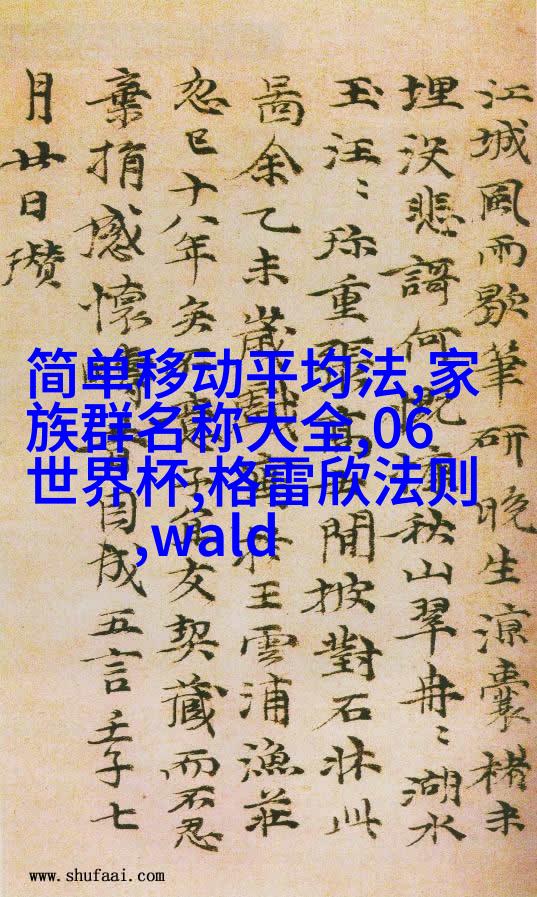 江城風雨歇筆研晚生涼囊楮未
埋沒悲謌何秋山翠冉〻湖水
玉汪〻珎重閒披對石牀此
啚余乙未歲王雲浦漁莊
忽已十八年矣友契藏而不忍
棄捐感懷因成五言壬子七
月廿日瓚
简单移动平均法,家
族群名称大全,06
世界杯,格雷欣法则
,wald
www.shufaai.com